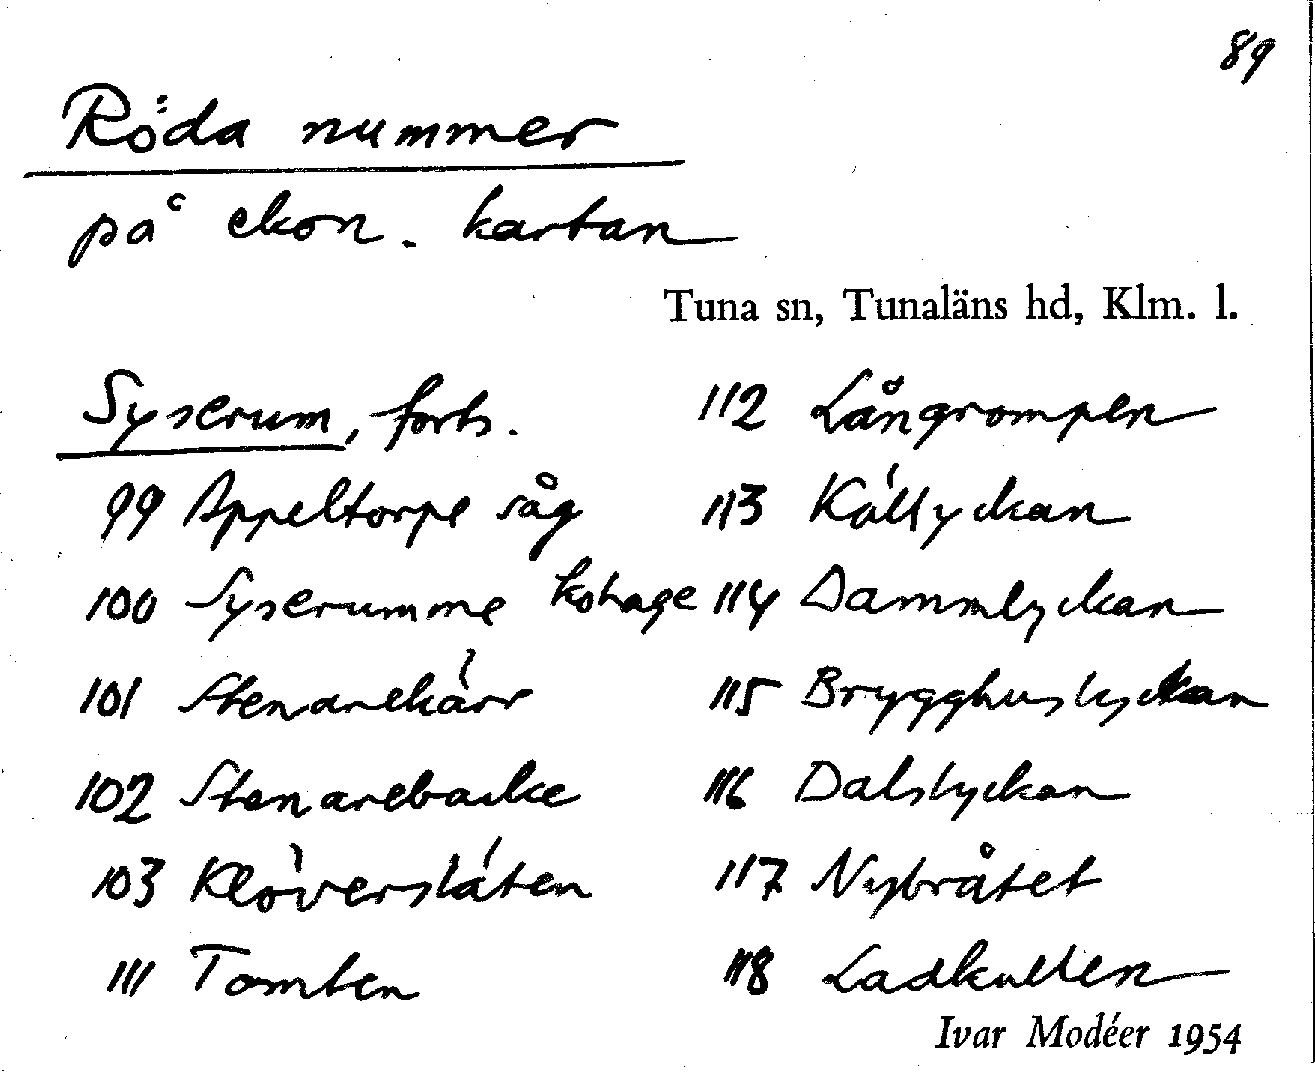 89
Röda nummer
på ekon. kartan
Tuna sn, Tunaläns hd, Klm. l.
Syserum, forts.
99 Appeltorpe såg
100 Syserumme kohage
101 Stenarekärr
102 Stenarebacke
103 Klöverslåten
111 Tomten
112 Långrompen
113 Kållyckan
114 Dammlyckan
115 Brygghuslyckan
116 Dalslyckan
117 Nybråtet
118 Ladkullen
Ivar Modéer 1954